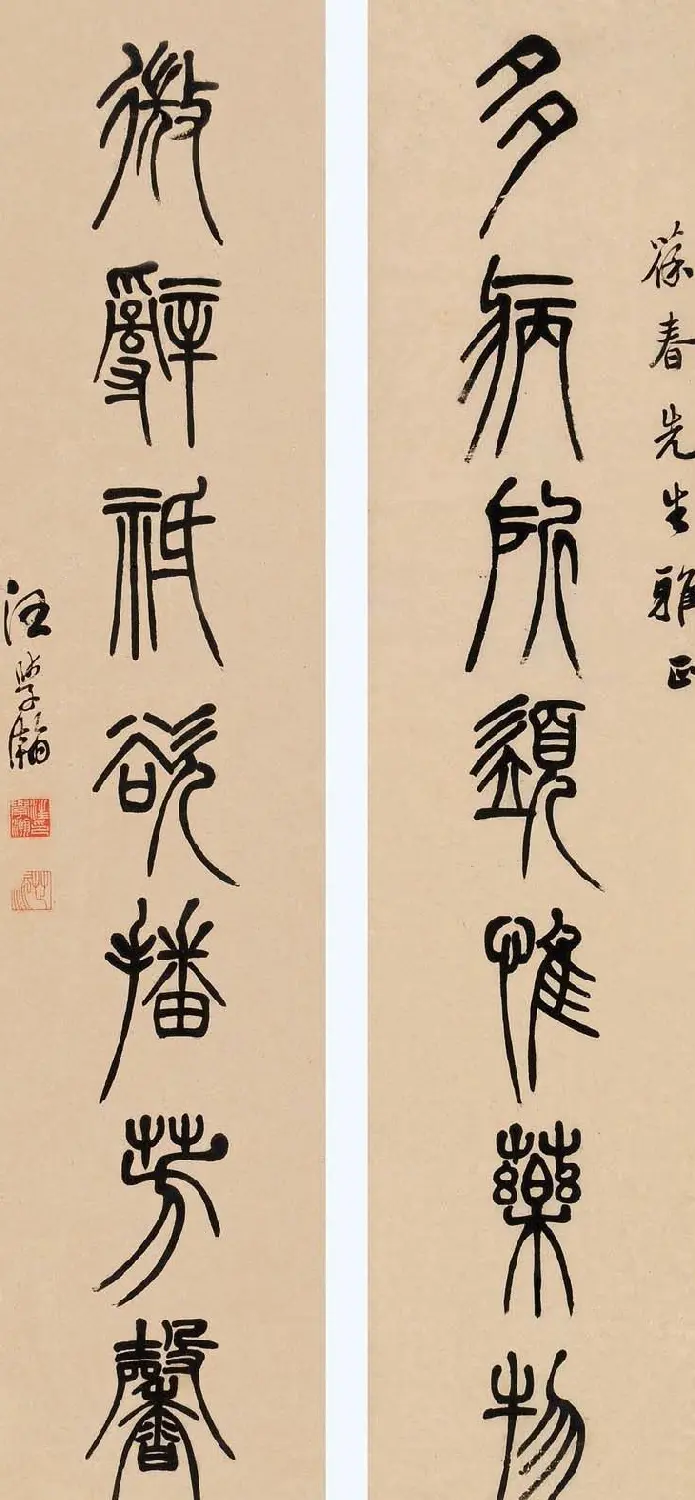 葆春先生雅正
多病所須惟藥物
微辭祇欲播芳馨
汪學瀚